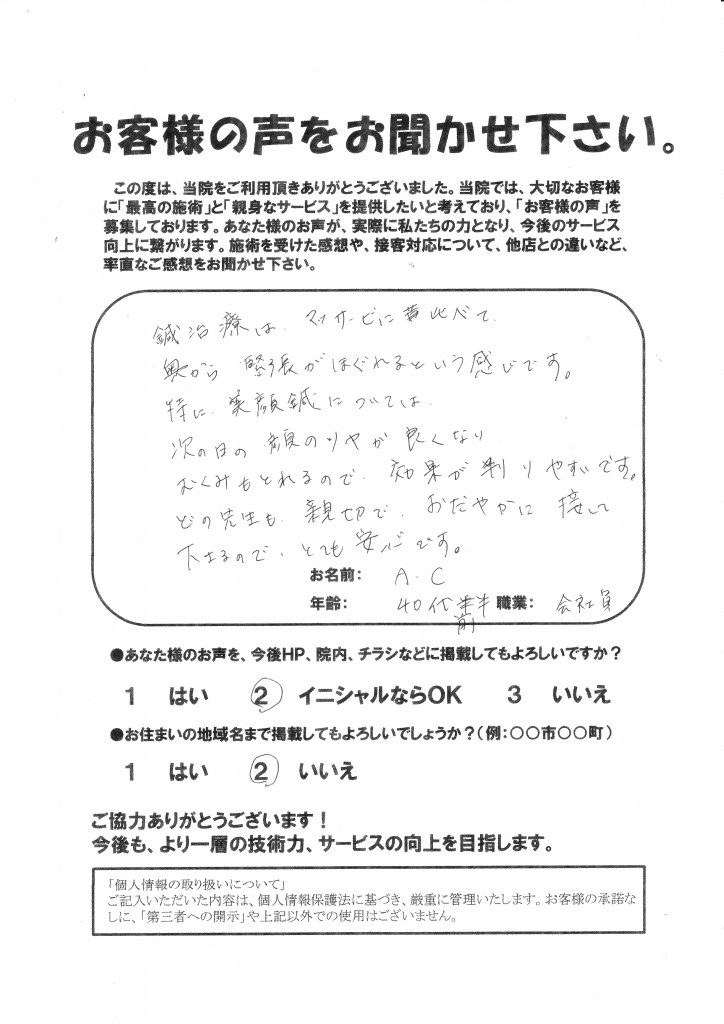 お客様の声をお聞かせ下さい。
この度は、当院をご利用頂きありがとうございました。当院では、大切なお客様
に「最高の施術」と「親身なサービス」を提供したいと考えており、「お客様の声」を
募集しております。あなた様のお声が、実際に私たちの力となり、今後のサービス
向上に繋がります。施術を受けた感想や、接客対応について、他店との違いなど、
率直なご感想をお聞かせ下さい。
鍼治療は、マッサージに比べて、
奥から 緊張がほぐれるという感じです。
特に、美顔鍼については、
次の日の 顔のツヤが 良くなり、
むくみもとれるので、効果が判りやすいです。
どの先生も、親切で、おだやかに 接して
下さるので、とても 安心です。
お名前: A.C
年齢: 40代前半 職業: 会社員
●あなた様のお声を、今後HP、院内、チラシなどに掲載してもよろしいですか?
1 はい 2 イニシャルならOK 3 いいえ
●お住まいの地域名まで掲載してもよろしいでしょうか?(例:〇〇市〇〇町)
1 はい 2 いいえ
ご協力ありがとうございます!
今後も、より一層の技術力、サービスの向上を目指します。
「個人情報の取り扱いについて」
ご記入いただいた内容は、個人情報保護法に基づき、厳重に管理いたします。お客様の承諾な
しに、「第三者への開示」や上記以外での使用はございません。